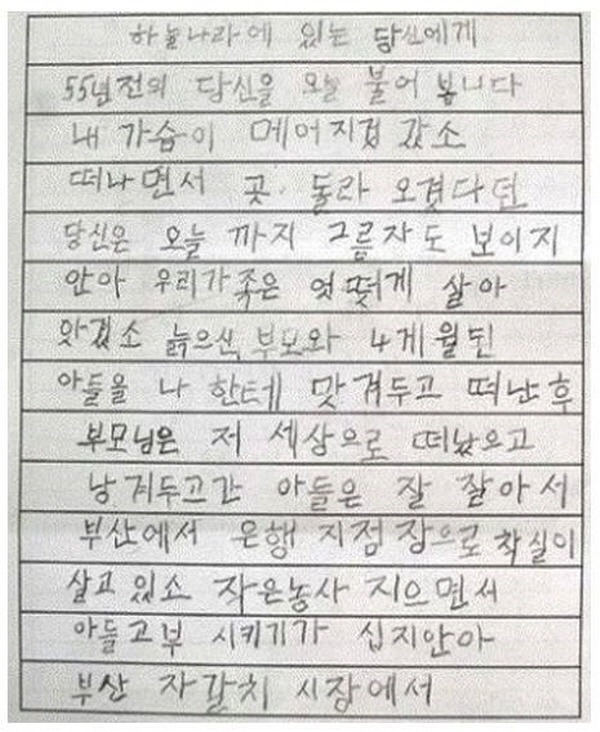 하늘나라에 있는 당신에게
55년전의 당신을 오늘 불어 봅니다
내 가슴이 메어지겁 갔소
떠나면서 곳 돌라 오겠다던
당신은 오늘 까지 그름자도 보이지
안아 우리가족은 엇떻게 살아
았겠소 늙으신 부모와 4게월된
아들을 나 한테 맛겨두고 떠난 후
부모님은 저 세상으로 떠났으고
낭겨두고간 아들은 잘 잘아서
부산에서 은행 지점장으로 착실이
살고 있소 작은농사 지으면서
아들고부 시키기가 십지안아
부산 자갈치 시장에서